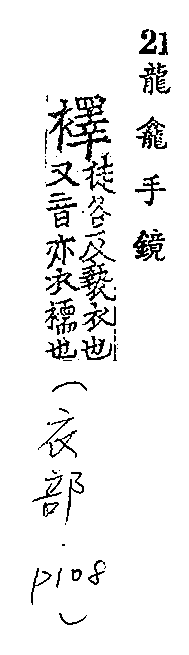 21龍龕手鏡
襗徒各反褻衣也
又音亦衣襦也
(衣部.P108)